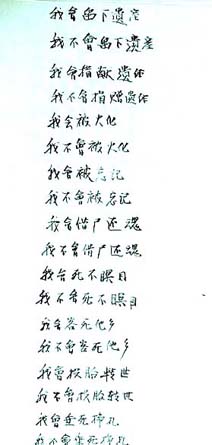 我會留下遺產
我不會留下遺產
我會捐献遺体
我不會捐贈遺体
我会被火化
我不會被火化
我會被忘记
我不會被忘记
我會借尸还魂
我不會借尸还魂
我会死不瞑目
我不會死不瞑目
我會客死他乡
我不會客死他乡
我會投胎转世
我不會投胎转世
我會垂死挣扎
我不會垂死挣扎